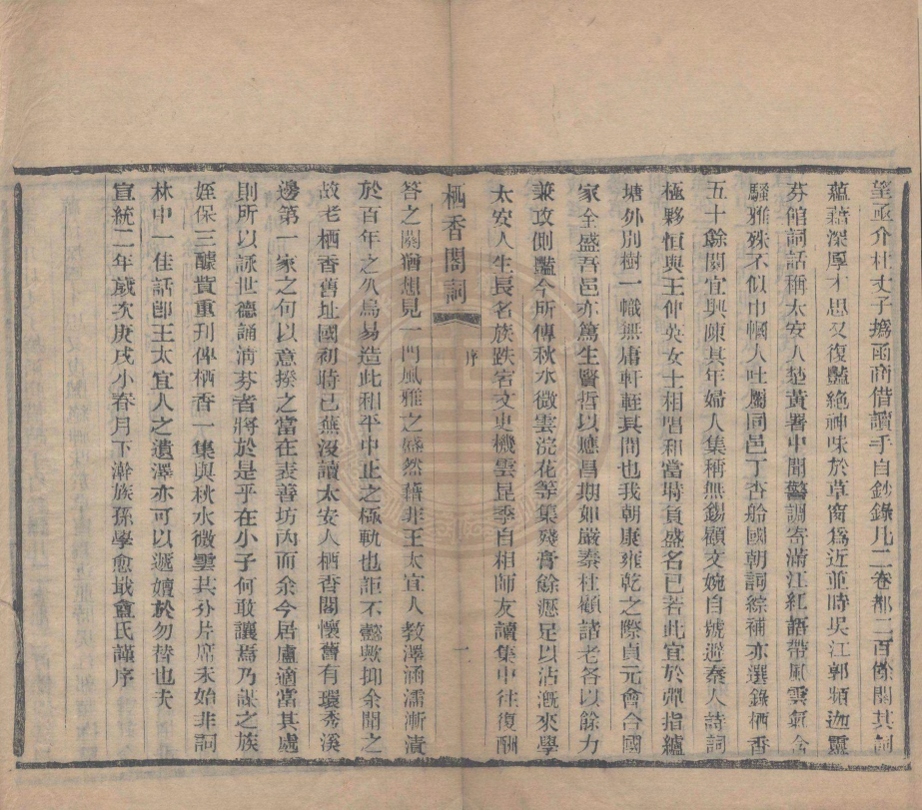 望亟介杜丈子撝函商借讀手自鈔錄凡二卷都二百餘闋其詞
蘊藉深厚才思又復豔絕神味於草窗為近並時吳江郭頻迦靈
芬館詞話稱太安人楚黃署中聞警調寄滿江紅語帶風雲氣含
騷雅殊不似巾幗人吐屬同邑丁杏船國朝詞綜補亦選錄栖香
五十餘闋宜興陳其年婦人集稱無錫顧文婉自號避秦人詩詞
極夥恒與王仲英女士相唱和當時負盛名已若此宜於彈指纑
塘外別樹一幟無庸軒輊其間也我朝康雍乾之際貞元會合國
家全盛吾邑亦篤生賢哲以應昌期如嚴秦杜顧諸老各以餘力
兼攻側豔今所傳秋水微雲浣花等集殘膏餘瀝足以沾溉來學
太安人生長名族跌宕文史機雲昆季自相師友讀集中往復酬
栖香閣詞　序　一
答之闋猶想見一門風雅之盛然藉非王太宜人教澤涵濡漸漬
於百年之久烏易造此和平中正之極軌也詎不懿歟抑余聞之
故老栖香舊址國初時已蕪沒讀太安人栖香閣懷舊有環秀溪
邊第一家之何以意揆之當在表善坊內而余今居廬適當其處
則所以詠世德誦清芬者將於是乎在小子何敢讓焉乃謀之族
姪保三醵貲重刊俾栖香一集與秋水微雲共分片席未始非詞
林中一佳話卽王太宜人之遺澤亦可以遞嬗於勿替也夫
宣統二年歲次庚戌小春月下澣族孫學愈戢盦氏謹序